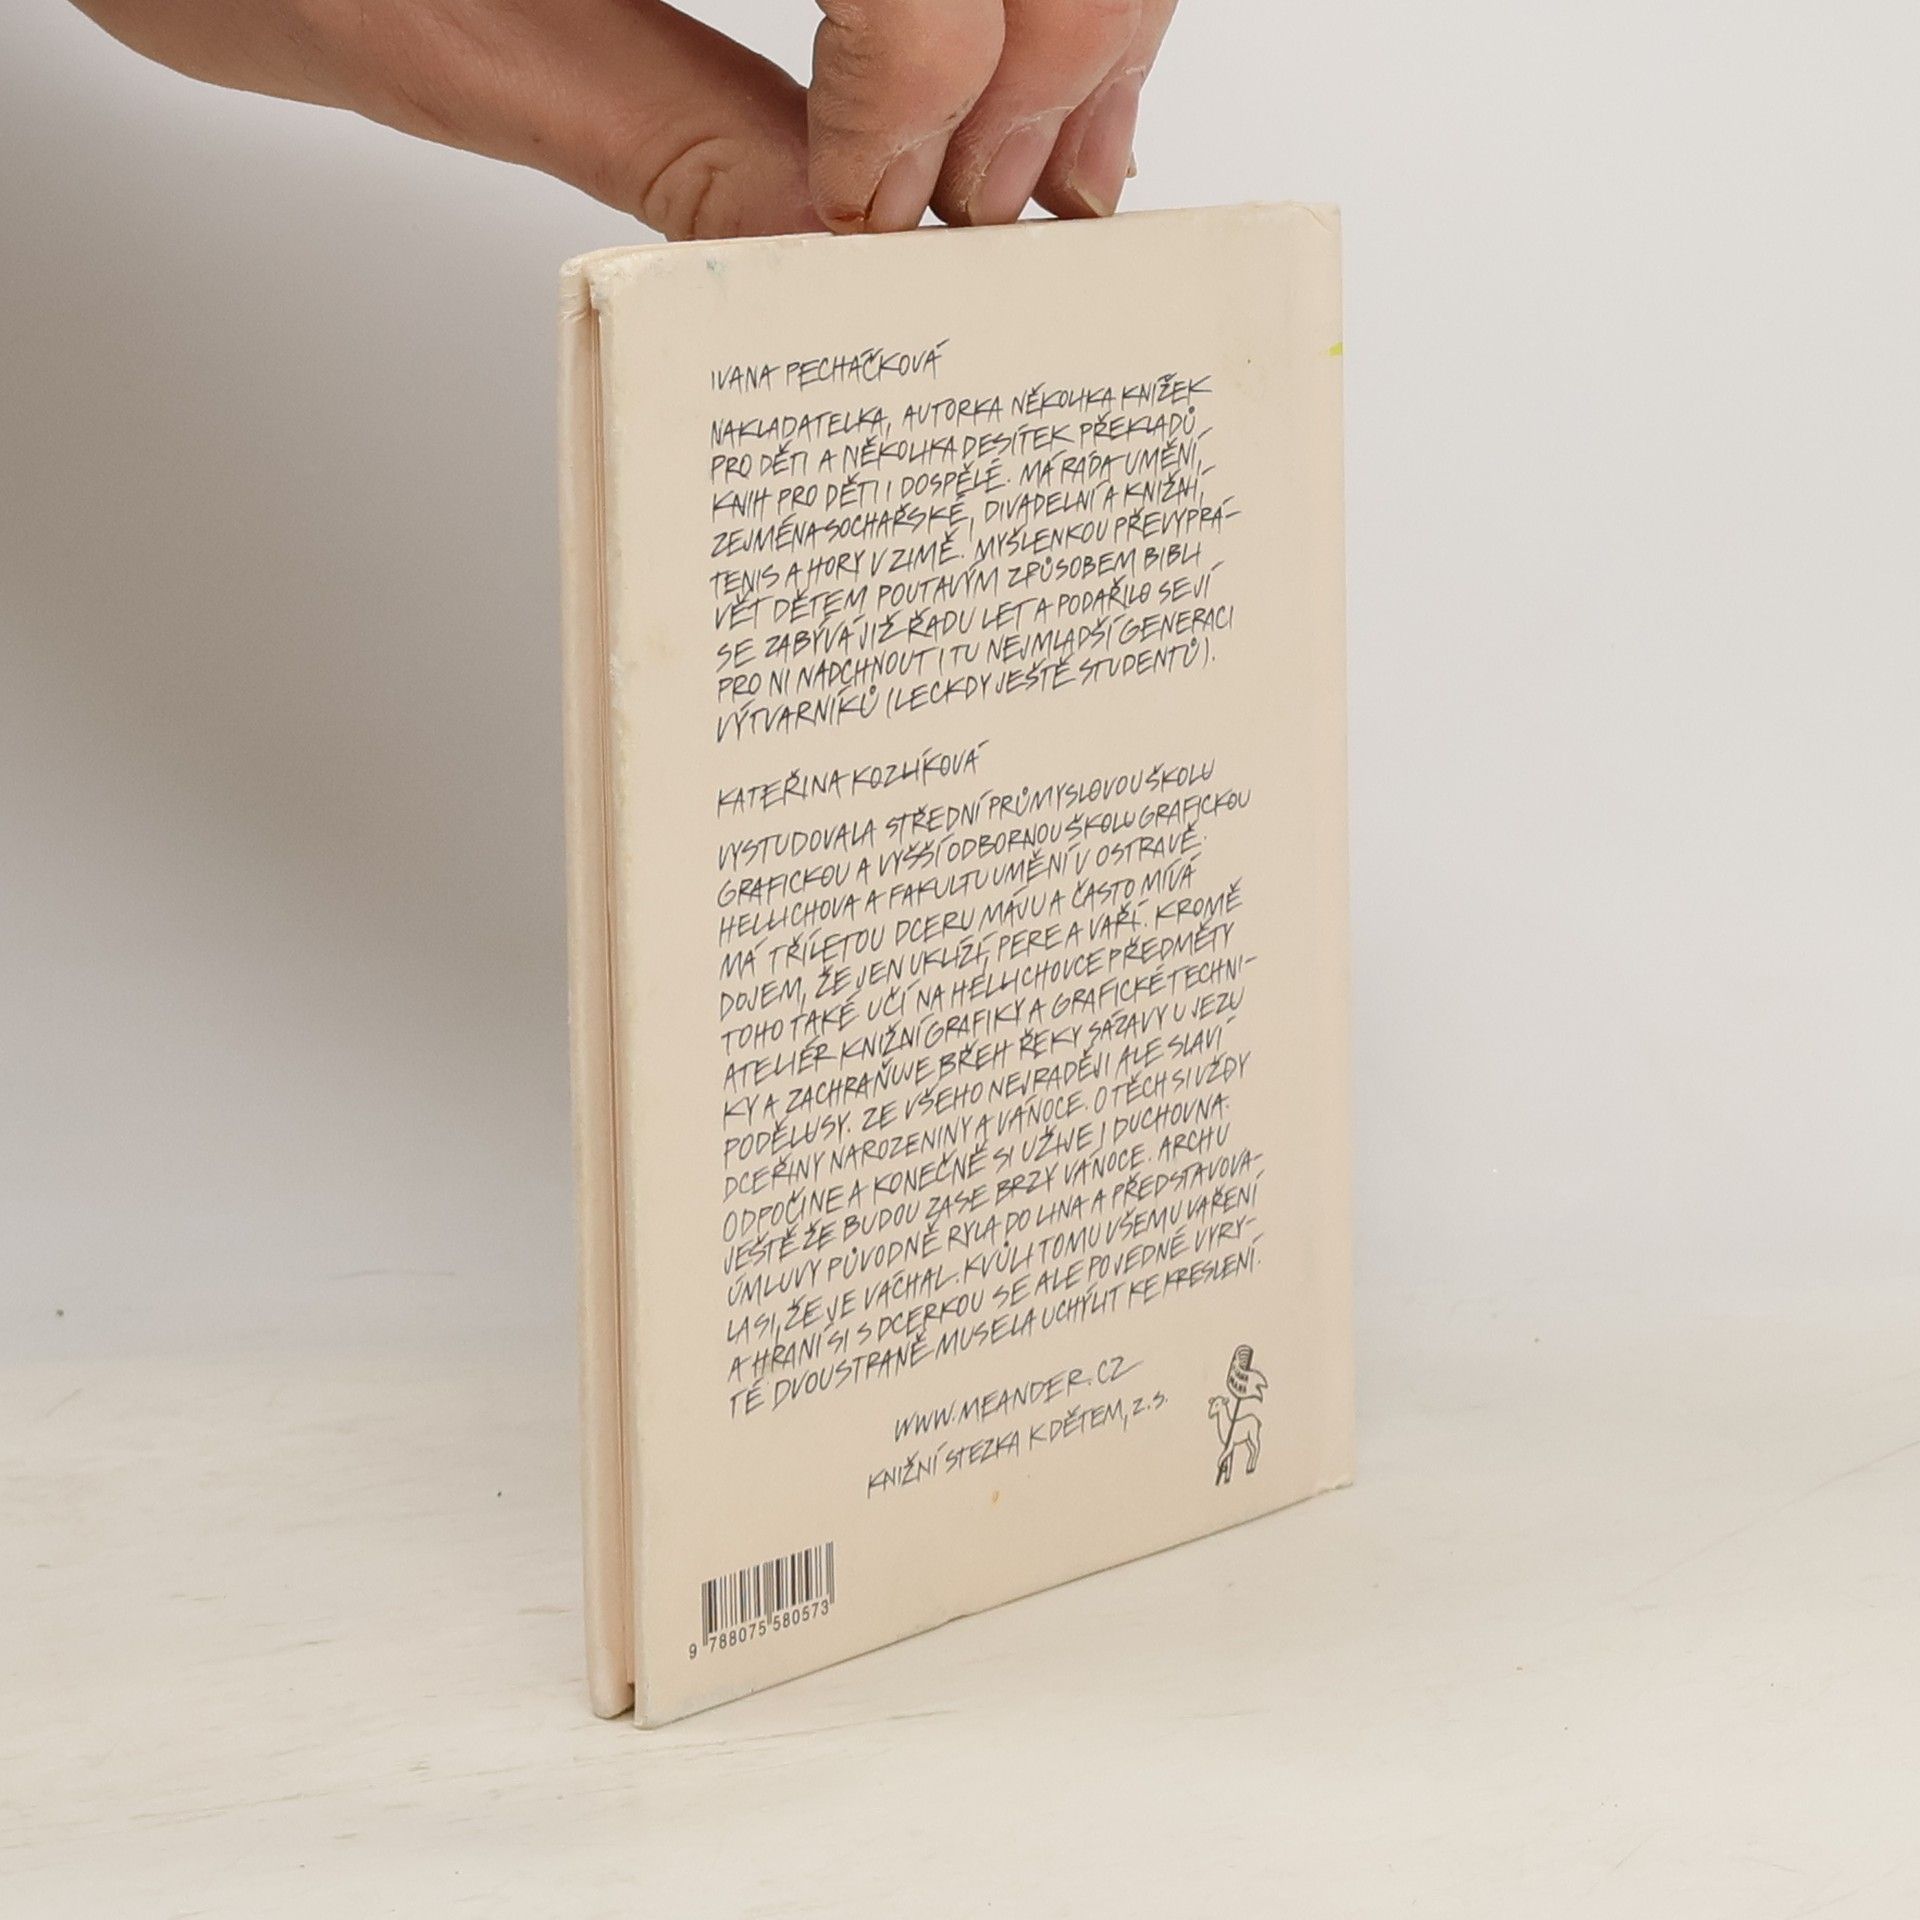 IVANA PECHÁČKOVÁ
NAKLADATELKA, AUTORKA NĚKOLIKA KNÍŽEK
PRO DĚTI A NĚKOLIKA DESÍTEK PŘEKLADŮ
KNIH PRO DĚTI I DOSPĚLÉ. MÁ RÁDA UMĚNÍ,
ZEJMÉNA SOCHAŘSKÉ, DIVADELNÍ A KNIŽNÍ,
TENIS A HORY V ZIMĚ. MYŠLENKOU PŘEVYPRÁ-
VĚT DĚTEM POUTAVÝM ZPŮSOBEM BIBLI
SE ZABÝVÁ JIŽ ŘADU LET A PODAŘILO SE JÍ
PRO NI NADCHNOUT I TU NEJMLADŠÍ GENERACI
VÝTVARNÍKŮ (LECKDY JEŠTĚ STUDENTŮ).
KATEŘINA KOZLÍKOVÁ
VYSTUDOVALA STŘEDNÍ PRŮMYSLOVOU ŠKOLU
GRAFICKOU A VYŠŠÍ ODBORNOU ŠKOLU GRAFICKOU
HELLICHOVA A FAKULTU UMĚNÍ V OSTRAVĚ.
MÁ TŘÍLETOU DCERU MÁJU A ČASTO MÍVÁ
DOJEM, ŽE JEN UKLÍZÍ, PERE A VAŘÍ. KROMĚ
TOHO TAKÉ UČÍ NA HELLICHOVCE PŘEDMĚTY
ATELIÉR KNIŽNÍ GRAFIKY A GRAFICKÉ TECHNI-
KY A ZACHRAŇUJE BŘEH ŘEKY SÁZAVY U JEZU
PODĚLUSY. ZE VŠEHO NEJRADĚJI ALE SLAVÍ
DCEŘINY NAROZENINY A VÁNOCE. O TĚCH SI VŽDY
ODPOČINE A KONEČNĚ SI UŽIJE I DUCHOVNA.
JEŠTĚ ŽE BUDOU ZASE BRZY VÁNOCE. ARCHU
ÚMLUVY PŮVODNĚ RYLA DO LINA A PŘEDSTAVOVA-
LA SI, ŽE JE VÁCHAL. KVŮLI TOMU VŠEMU VAŘENÍ
A HRANÍ SI S DCERKOU SE ALE PO JEDNÉ VYRY-
TÉ DVOUSTRANĚ MUSELA UCHÝLIT KE KRESLENÍ.
WWW.MEANDER.CZ
KNIŽNÍ STEZKA K DĚTEM, Z.S.
9 788075 580573